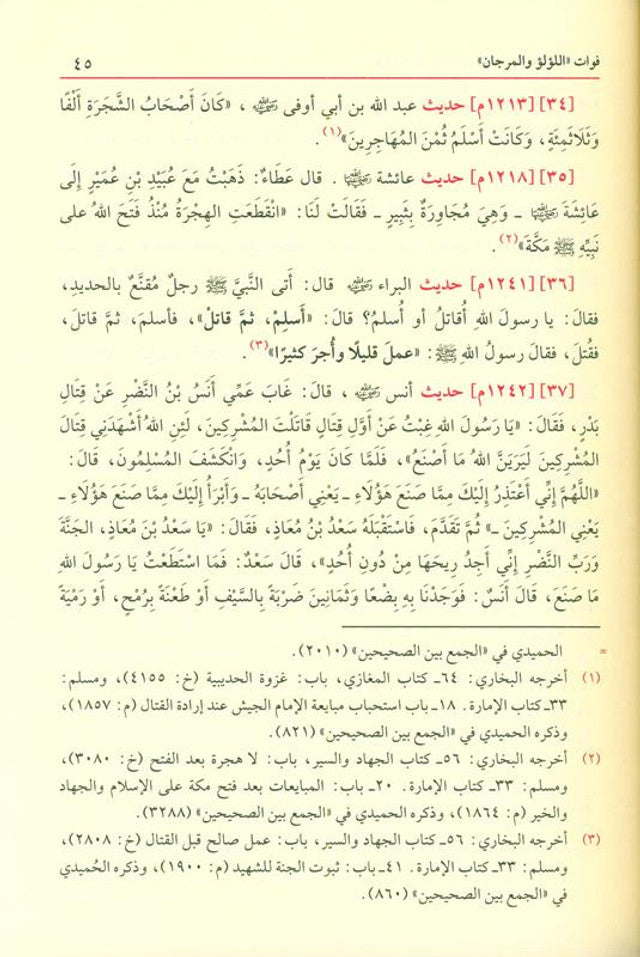 فوات «اللؤلؤ والمرجان» ٤٥
[٣٤] [١٢١٣م] حديث عبد الله بن أبي أوفى رضي الله عنه ، «كَانَ أَصْحَابُ الشَّجَرَةِ أَلْفًا
وَثَلَاثَمِئَةٍ، وَكَانَتْ أَسْلَمُ ثُمْنَ المُهَاجِرِينَ»(١).
[٣٥] [١٢١٨م] حديث عائشة رضي الله عنها . قال عَطَاءٌ: ذَهَبْتُ مَعَ عُبَيْدِ بْنِ عُمَيْرٍ إِلَى
عَائِشَةَ رضي الله عنها ـ وَهِيَ مُجَاوِرَةٌ بِثَبِيرٍ ـ فَقَالَتْ لَنَا: «انْقَطَعَتِ الهِجْرَةُ مُنْذُ فَتَحَ اللهُ على
نَبِيِّهِ ﷺ مَكَّةَ»(٢).
[٣٦] [١٢٤١م] حديث البراء رضي الله عنه قال: أتى النَّبيَّ ﷺ رجلٌ مُقنَّعٌ بالحديدِ،
فقالَ: يا رسولَ اللهِ أُقاتلُ أو أُسلمُ؟ قالَ: «أَسلِمْ، ثمَّ قاتلْ»، فأسلمَ، ثمَّ قاتلَ،
فقُتلَ، فقالَ رسولُ اللهِ ﷺ: «عملَ قليلًا وأُجرَ كثيرًا»(٣).
[٣٧] [١٢٤٢م] حديث أنس رضي الله عنه ، قالَ: غَابَ عَمِّي أَنَسُ بْنُ النَّضْرِ عَنْ قِتَالِ
بَدْرٍ، فَقَالَ: «يَا رَسُولَ اللهِ غِبْتُ عَنْ أَوَّلِ قِتَالٍ قَاتَلْتَ المُشْرِكِينَ، لَئِنِ اللهُ أَشْهَدَنِي قِتَالَ
المُشْرِكِينَ لَيَرَيَنَّ اللهُ مَا أَصْنَعُ»، فَلَمَّا كَانَ يَوْمُ أُحُدٍ، وَانْكَشَفَ المُسْلِمُونَ، قَالَ:
«اللَّهُمَّ إِنِّي أَعْتَذِرُ إِلَيْكَ مِمَّا صَنَعَ هَؤُلَاءِ ـ يَعْنِي أَصْحَابَهُ ـ وَأَبْرَأُ إِلَيْكَ مِمَّا صَنَعَ هَؤُلَاءِ ـ
يَعْنِي المُشْرِكِينَ ـ» ثُمَّ تَقَدَّمَ، فَاسْتَقْبَلَهُ سَعْدُ بْنُ مُعَاذٍ، فَقَالَ: «يَا سَعْدُ بْنَ مُعَاذٍ، الجَنَّةَ
وَرَبِّ النَّضْرِ إِنِّي أَجِدُ رِيحَهَا مِنْ دُونِ أُحُدٍ»، قَالَ سَعْدٌ: فَمَا اسْتَطَعْتُ يَا رَسُولَ اللهِ
مَا صَنَعَ، قَالَ أَنَسٌ: فَوَجَدْنَا بِهِ بِضْعًا وَثَمَانِينَ ضَرْبَةً بِالسَّيْفِ أَوْ طَعْنَةً بِرُمْحٍ، أَوْ رَمْيَةً
= الحميدي في «الجمع بين الصحيحين» (٢٠١٠).
(١) أخرجه البخاري: ٦٤ـ كتاب المغازي، باب: غزوة الحديبية (خ: ٤١٥٥)، ومسلم:
٣٣ـ كتاب الإمارة. ١٨ـ باب استحباب مبايعة الإمام الجيش عند إرادة القتال (م: ١٨٥٧)،
وذكره الحميدي في «الجمع بين الصحيحين» (٨٢١).
(٢) أخرجه البخاري: ٥٦ـ كتاب الجهاد والسير، باب: لا هجرة بعد الفتح (خ: ٣٠٨٠)،
ومسلم: ٣٣ـ كتاب الإمارة. ٢٠ـ باب: المبايعات بعد فتح مكة على الإسلام والجهاد
والخير (م: ١٨٦٤)، وذكره الحميدي في «الجمع بين الصحيحين» (٣٢٨٨).
(٣) أخرجه البخاري: ٥٦ـ كتاب الجهاد والسير، باب: عمل صالح قبل القتال (خ: ٢٨٠٨)،
ومسلم: ٣٣ـ كتاب الإمارة. ٤١ـ باب: ثبوت الجنة للشهيد (م: ١٩٠٠)، وذكره الحُميدي
في «الجمع بين الصحيحين» (٨٦٠).